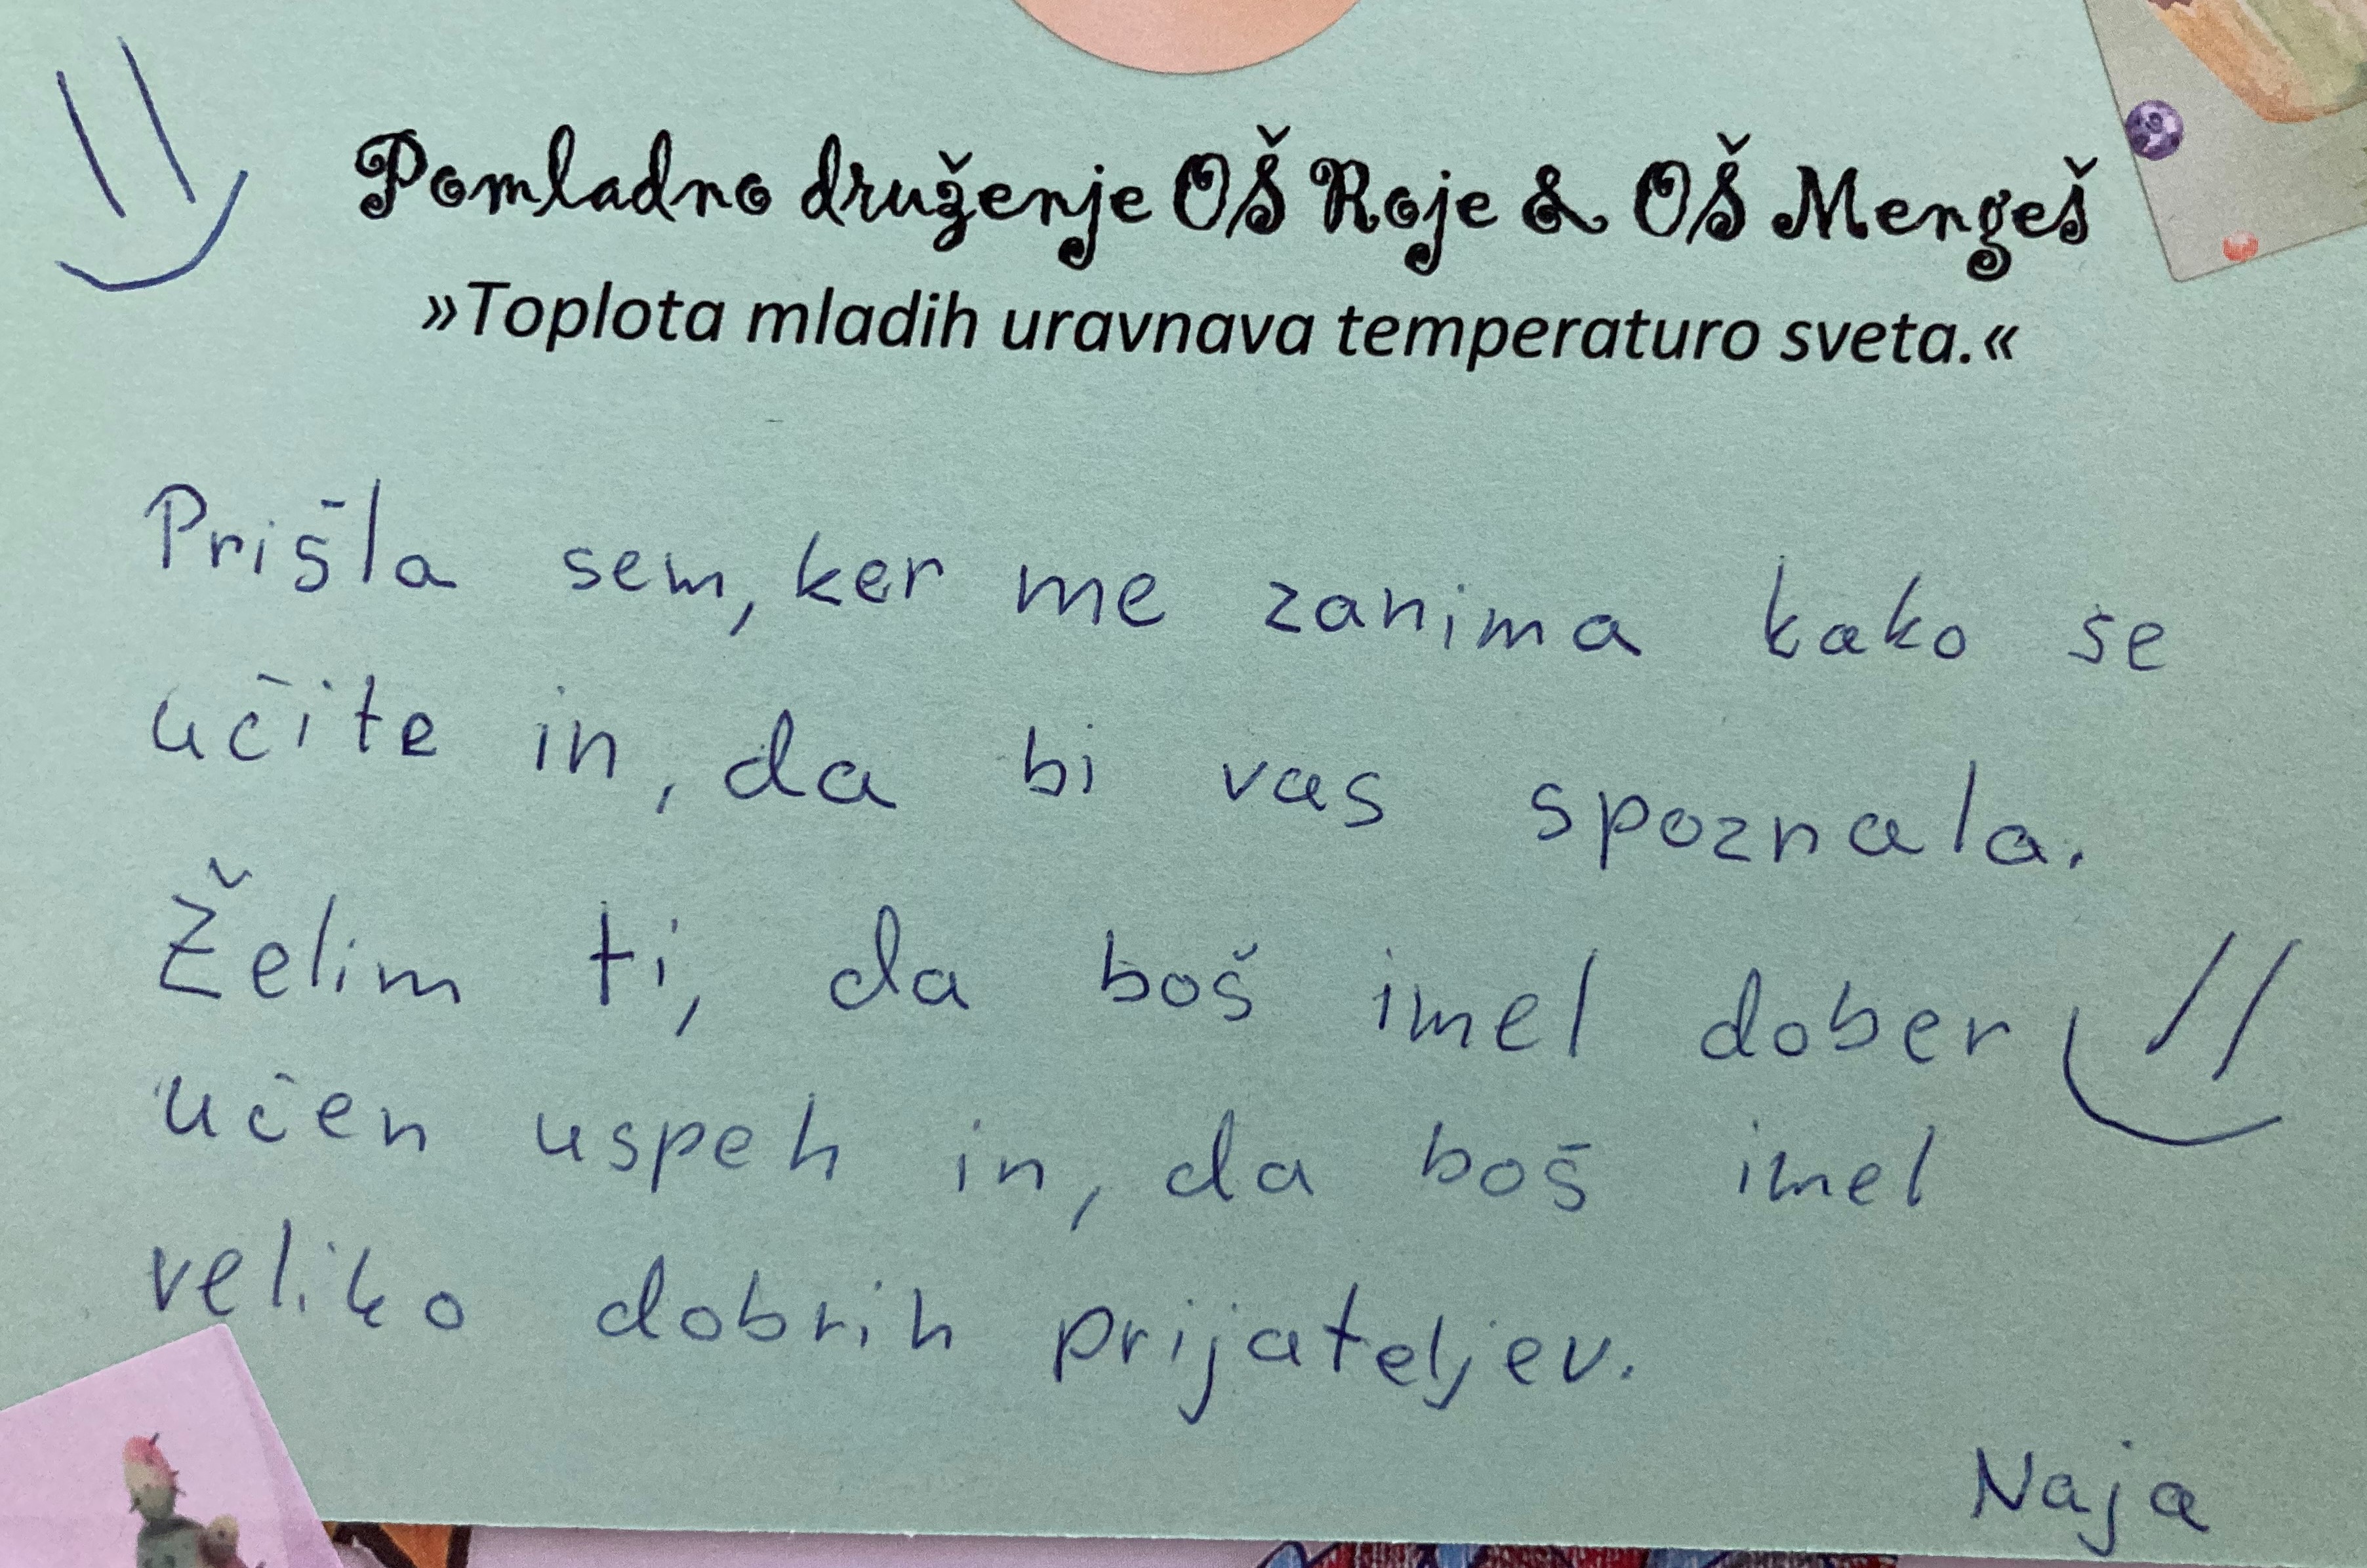 Pomladno druženje OŠ Roje & OŠ Mengeš
»Toplota mladih uravnava temperaturo sveta.«
Prišla sem, ker me zanima kako se
učite in, da bi vas spoznala.
Želim ti, da boš imel dober
učen uspeh in, da boš imel
veliko dobrih prijateljev.
Naja